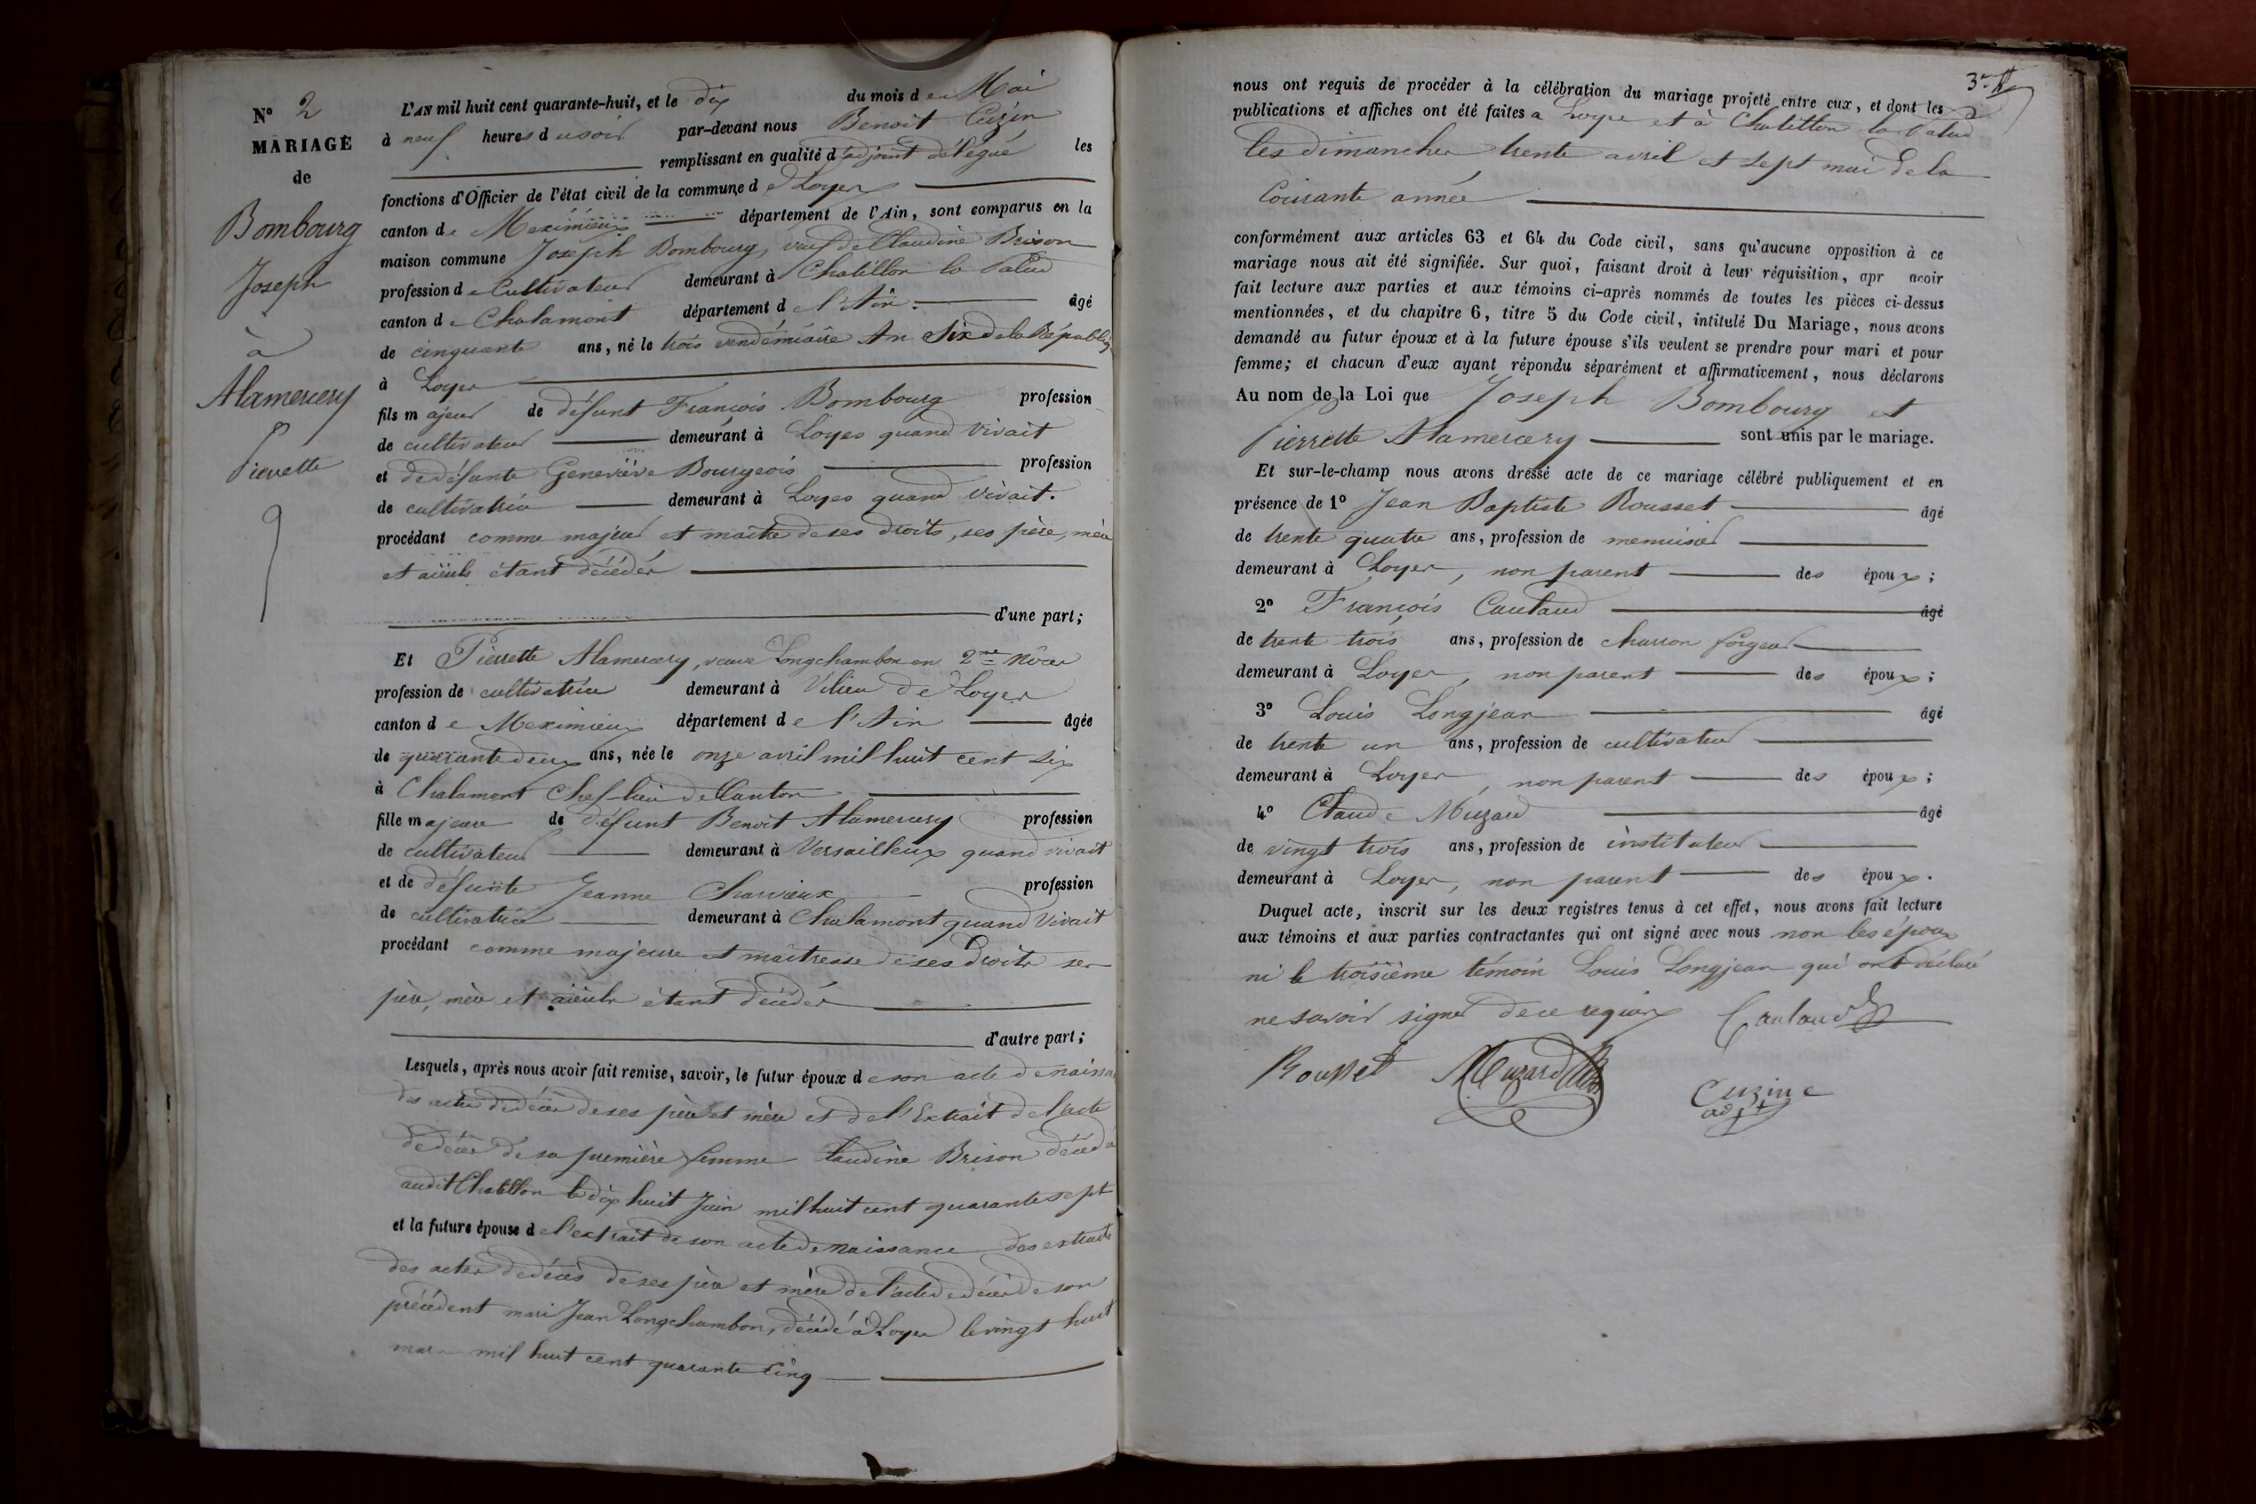 Nº 2
MARIAGE
de
Bombourg
Joseph
à
Alamercery
Pierrette
L'AN mil huit cent quarante-huit, et le dix du mois de Mai
à neuf heures du soir par-devant nous Benoit Cuzin
remplissant en qualité d'adjoint délégué les
fonctions d'Officier de l'état civil de la commune de Loyes
canton de Meximieux département de l'Ain, sont comparus en la
maison commune Joseph Bombourg, veuf de Claudine Brison
profession de Cultivateur demeurant à Chatillon la Palud
canton de Chalamont département de l'Ain. âgé
de cinquante ans, né le trois vendémiaire An Six de la Républiq
à Loyes
fils majeur de défunt François Bombourg profession
de cultivateur demeurant à Loyes quand vivait
et de défunte Geneviève Bourgeois profession
de cultivatrice demeurant à Loyes quand vivait.
procédant comme majeur et maitre de ses droits, ses père, mère
et aïeuls étant décédés
d'une part;
Et Pierrette Alamercery, veuve Longchambon en 2me Nôces
profession de cultivatrice demeurant à Vilieu de Loyes
canton de Meximieux département de l'Ain âgée
de quarante deux ans, née le onze avril mil huit cent six
à Chalamont Chef-lieu de Canton
fille majeure de défunt Benoit Alamercery profession
de cultivateur demeurant à Versailleux quand vivait
et de défunte Jeanne Charvieux profession
de cultivatrice demeurant à Chalamont quand vivait
procédant comme majeure et maîtresse de ses Droits ses
père, mère et aïeuls étant décédés
d'autre part;
Lesquels, après nous avoir fait remise, savoir, le futur époux de son acte de naissa
des actes de décès de ses père et mère et de l'Extrait de l'acte
de décès de sa première femme Claudine Brison décédé
audit Chatillon le dix huit Juin mil huit cent quarante sept
et la future épouse de l'extrait de son acte de naissance des extraits
des actes de décès de ses père et mère de l'acte de décès de son
précédent mari Jean Longchambon, décédé à Loyes le vingt huit
mars mil huit cent quarante cinq
3
nous ont requis de procéder à la célébration du mariage projeté entre eux, et dont les
publications et affiches ont été faites a Loyes et à Chatillon la Palud
les dimanches trente avril et sept mai de la
Courante année
conformément aux articles 63 et 64 du Code civil, sans qu'aucune opposition à ce
mariage nous ait été signifiée. Sur quoi, faisant droit à leur réquisition, apr avoir
fait lecture aux parties et aux témoins ci-après nommés de toutes les pièces ci-dessus
mentionnées, et du chapitre 6, titre 5 du Code civil, intitulé Du Mariage, nous avons
demandé au futur époux et à la future épouse s'ils veulent se prendre pour mari et pour
femme; et chacun d'eux ayant répondu séparément et affirmativement, nous déclarons
Au nom de la Loi que Joseph Bombourg et
Pierrette Alamercery sont unis par le mariage.
Et sur-le-champ nous avons dressé acte de ce mariage célébré publiquement et en
présence de 1º Jean Baptiste Rousset âgé
de trente quatre ans, profession de menuisier
demeurant à Loyes, non parent des époux;
2º François Cautaud âgé
de trente trois ans, profession de charron forgeur
demeurant à Loyes, non parent des époux;
3º Louis Longjean âgé
de trente un ans, profession de cultivateur
demeurant à Loyes, non parent des époux;
4º Claude Muzard âgé
de vingt trois ans, profession de instituteur
demeurant à Loyes, non parent des époux.
Duquel acte, inscrit sur les deux registres tenus à cet effet, nous avons fait lecture
aux témoins et aux parties contractantes qui ont signé avec nous non les époux
ni le troisième témoin Louis Longjean qui ont déclaré
ne savoir signer de ce requis Cautaud
Rousset Muzard Cuzin
adjt